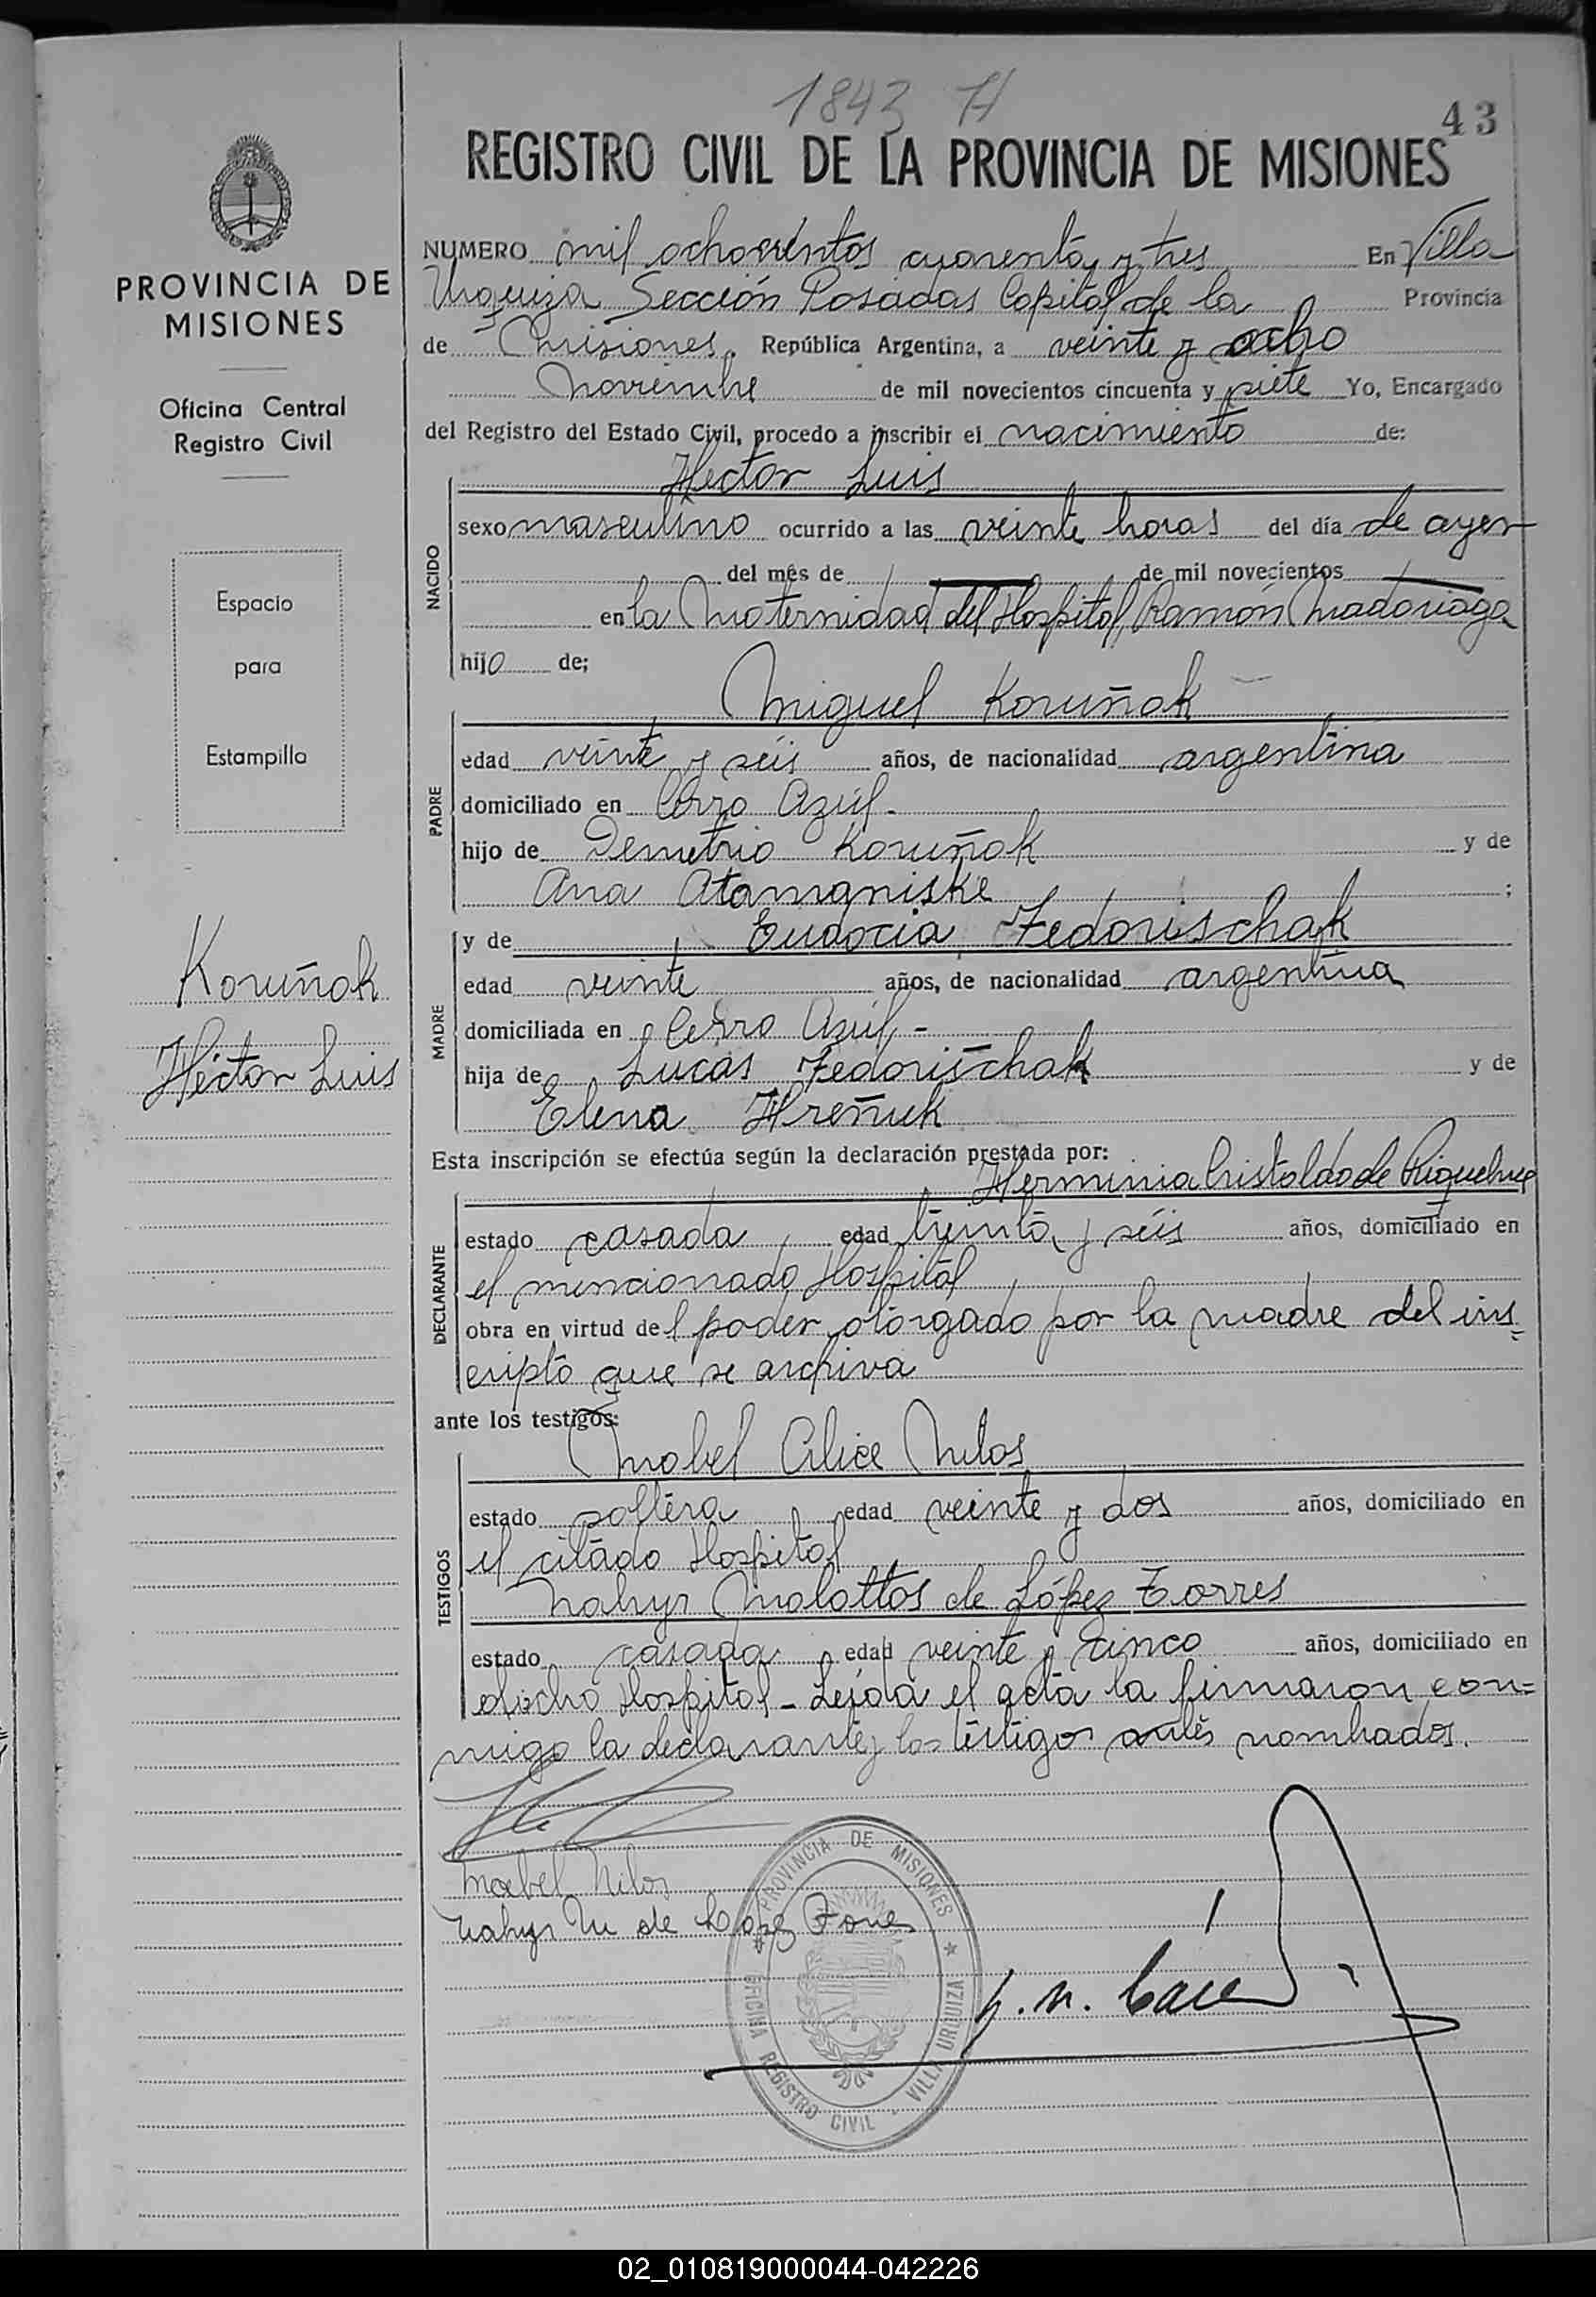 1843 H
43
REGISTRO CIVIL DE LA PROVINCIA DE MISIONES
PROVINCIA DE
MISIONES
Oficina Central
Registro Civil
Espacio
para
Estampilla
Koruñak
Héctor Luis
NUMERO mil ochocientos cuarenta y tres En Villa
Urquiza Sección Posadas Capital de la Provincia
de Misiones. República Argentina, a veinte y ocho
Noviembre de mil novecientos cincuenta y siete Yo, Encargado
del Registro del Estado Civil, procedo a inscribir el nacimiento de:
Hector Luis
NACIDO
sexo masculino ocurrido a las veinte horas del día de ayer
del mês de de mil novecientos
en la Maternidad del Hospital Ramón Madariaga
hijo de;
Miguel Koruñak
PADRE
edad veinte y séis años, de nacionalidad argentina
domiciliado en Cerro Azúl.
hijo de Demetrio Koruñak y de
Ana Atamaniske ;
MADRE
y de Eudocia Fedorischak
edad veinte años, de nacionalidad argentina
domiciliada en Cerro Azúl -
hija de Lucas Fedorischak y de
Elena Hreñuk
Esta inscripción se efectúa según la declaración prestada por:
Herminia Cristaldo de Riquelme
DECLARANTE
estado casada edad treinta y séis años, domiciliado en
el mencionado Hospital
obra en virtud del poder otorgado por la madre del ins=
cripto que se archiva
ante los testigos:
Mabel Alice Milos
TESTIGOS
estado soltera edad veinte y dos años, domiciliado en
el citado Hospital
Nahyr Malottos de López Torres
estado casada edad veinte y cinco años, domiciliado en
dicho Hospital - Leída el acta la firmaron con=
migo la declarante y los testigos antes nombrados.
Mabel Milos
Nahyr M de Lopez Torres
PROVINCIA DE MISIONES
OFICINA REGISTRO CIVIL - VILLA URQUIZA
02_010819000044-042226